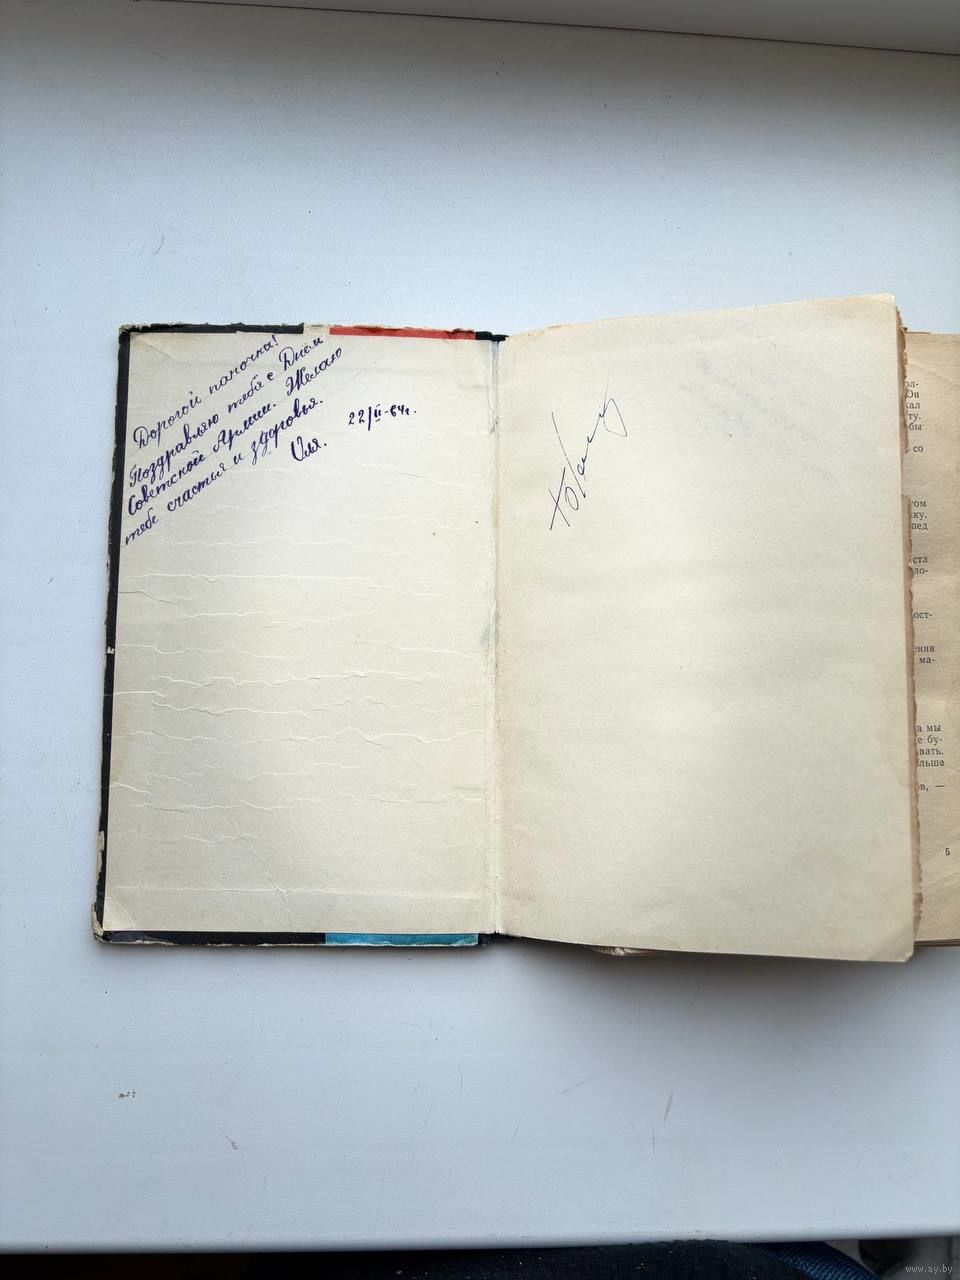 Дорогой папочка!
Поздравляю тебя с Днём
Советской Армии. Желаю
тебе счастья и здоровья.
Оля.
22/II-64г.
ол-
Он
кал
ту.
бы
со
том
ку.
пед
ста
ло-
ост-
ения
ма-
а мы
е бу-
вать.
льше
ов, —
5
www.ay.by